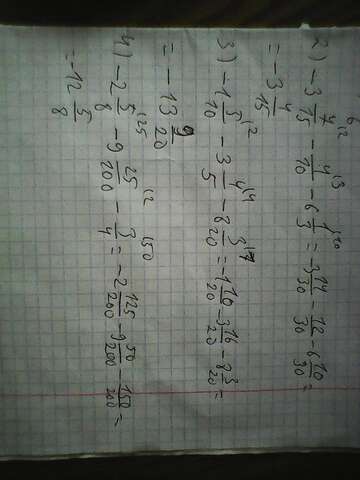 2) -3 7/15 - 4/10 - 6 1/3 = -3 14/30 - 12/30 - 6 10/30 =
= -3 4/15
3) -1 5/10 - 3 4/5 - 8 3/20 = -1 10/20 - 3 16/20 - 8 3/20 =
= -13 9/20
4) -2 5/8 - 9 25/100 - 3/4 = -2 125/200 - 9 50/200 - 150/200 =
= -12 5/8